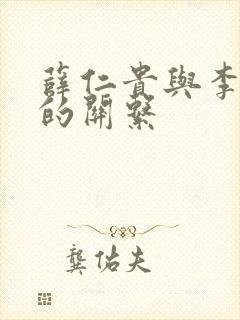 薛仁貴與李
的關繫
龔佑夫